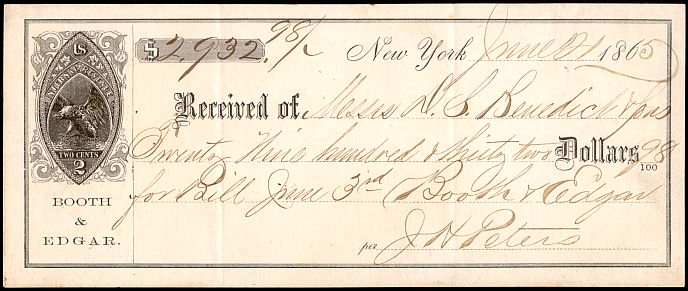 US
INTERNAL REVENUE
TWO CENTS
2
BOOTH
&
EDGAR.
$2,932.98/
New York June 21 1865
Received of Messrs D. S. Benedict & Sons
Twenty Nine hundred & thirty two Dollars 98/100
for Bill June 3rd Booth & Edgar
per J H Peters